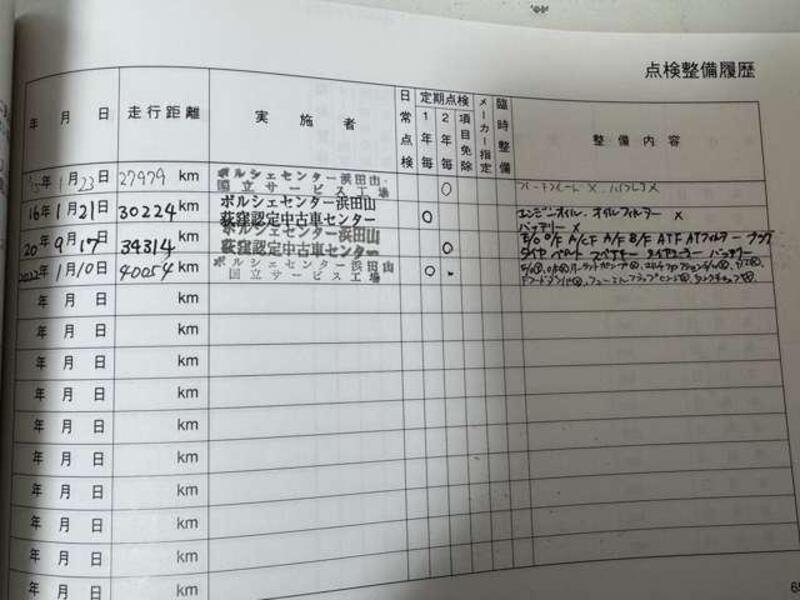 点検整備履歴
年 月 日 走行距離 実施者 日常点検 定期点検 1年毎 2年毎 項目免除 メーカー指定 臨時整備 整備内容
15年1月23日 27979 km ポルシェセンター浜田山 ○
国立サービス工場
16年1月21日 30224 km ポルシェセンター浜田山 ○ エンジンオイル・オイルフィルター ×
荻窪認定中古車センター バッテリー ×
20年9月17日 34314 km ポルシェセンター浜田山 ○ E/O O/F A/CF A/F B/F ATF ATフィルター プラグ
荻窪認定中古車センター タイヤ ベルト バッテリー
2022年1月10日 40054 km ポルシェセンター浜田山 ○
国立サービス工場
年 月 日 km
年 月 日 km
年 月 日 km
年 月 日 km
年 月 日 km
年 月 日 km
年 月 日 km
年 月 日 km
年 月 日 km
年 月 日 km